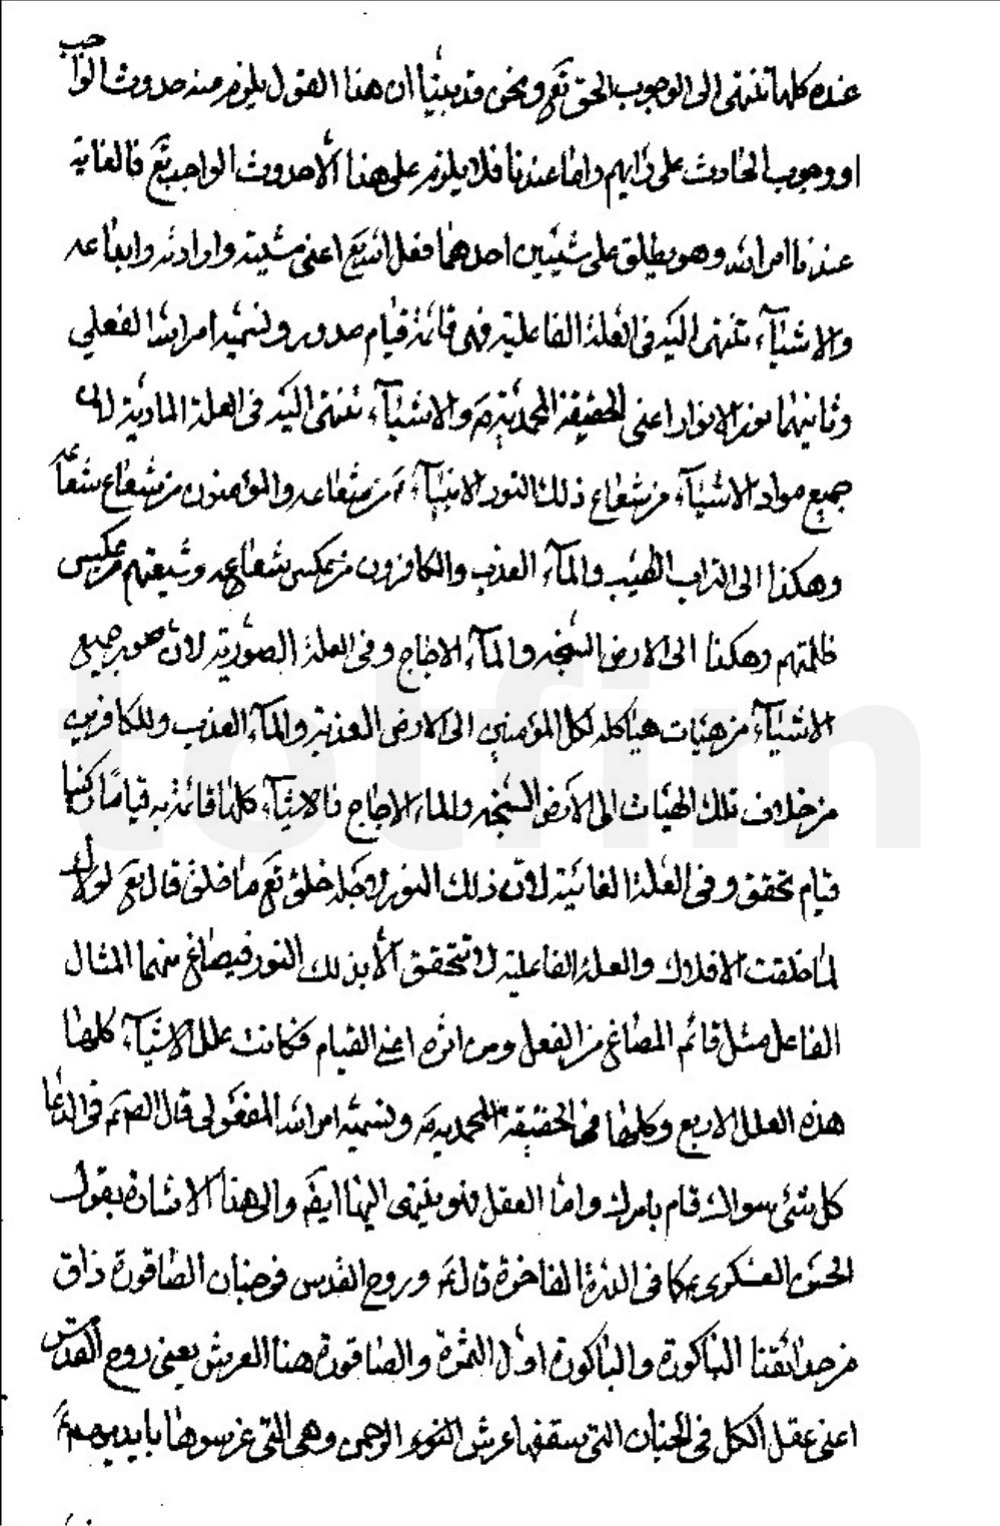 عنده كلها تنتهى الى الوجوب الحق تع ونحن قد بيّنا ان هذا القول يلزم منه حدوث الواجب
او وجوب الحادث على رايهم واما عندنا فلا يلزم على هذا الا حدوث الواجب تع فالغاية
عندنا امر الله وهو يطلق على شيئين احدهما فعل الله تع اعنى مشيته وارادته وابداعه
والاشياء تنتهى اليه فى العلة الفاعلية فهى قائمة قيام صدور ونسميه امر الله الفعلي
وثانيهما نور الانوار اعنى الحقيقة المحمدية ص والاشياء تنتهى اليه فى العلة المادية لان
جميع مواد الاشياء من شعاع ذلك النور الانبياء ع من شعاعه والمؤمنون من شعاع شعاعه
وهكذا الى التراب الطيب والماء العذب والكافرون من عكس شعاعه وشيعتهم من عكس
ظلمتهم وهكذا الى الارض السبخه والماء الاجاج وفى العلة الصورية لان صور جميع
الاشياء من هيئات هياكله لكل المؤمنين الى الارض العذبة والماء العذب وللكافرين
من خلاف تلك الهيئات الى الارض السبخه والماء الاجاج فالاشياء كلها قائمة به قياما ركنيا
قيام تحقق وفى العلة الغائية لان ذلك النور لاجله خلق تع ما خلق قال تع لولاك
لما خلقت الافلاك والعلة الفاعلية لا تتحقق الا بذلك النور فيصاغ منهما المثال
الفاعل مثل قائم المصاغ من الفعل ومن اثره اعنى القيام فكانت علل الاشياء كلها
هذه العلل الاربع وكلها فى الحقيقة المحمدية ص ونسميه امر الله المفعولى قال الصم ع فى الدعا
كل شئ سواك قام بامرك واما العقل فهو ينتهى اليها ايضا والى هذا الاشارة بقول
الحسن العسكرى ع كما فى الدرة الفاخرة قال ع وروح القدس فى جنان الصاقورة ذاق
من حدائقنا الباكورة والباكورة اول الثمرة والصاقورة هنا العرش يعنى روح القدس
اعنى عقل الكل فى الجنان التى سقفها عرش الرحمن وهى التى غرسوها بايديهم ع